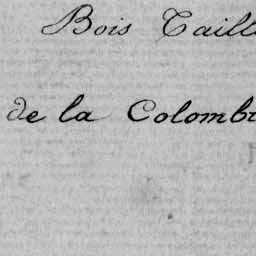 Bois Taill
de la Colomb